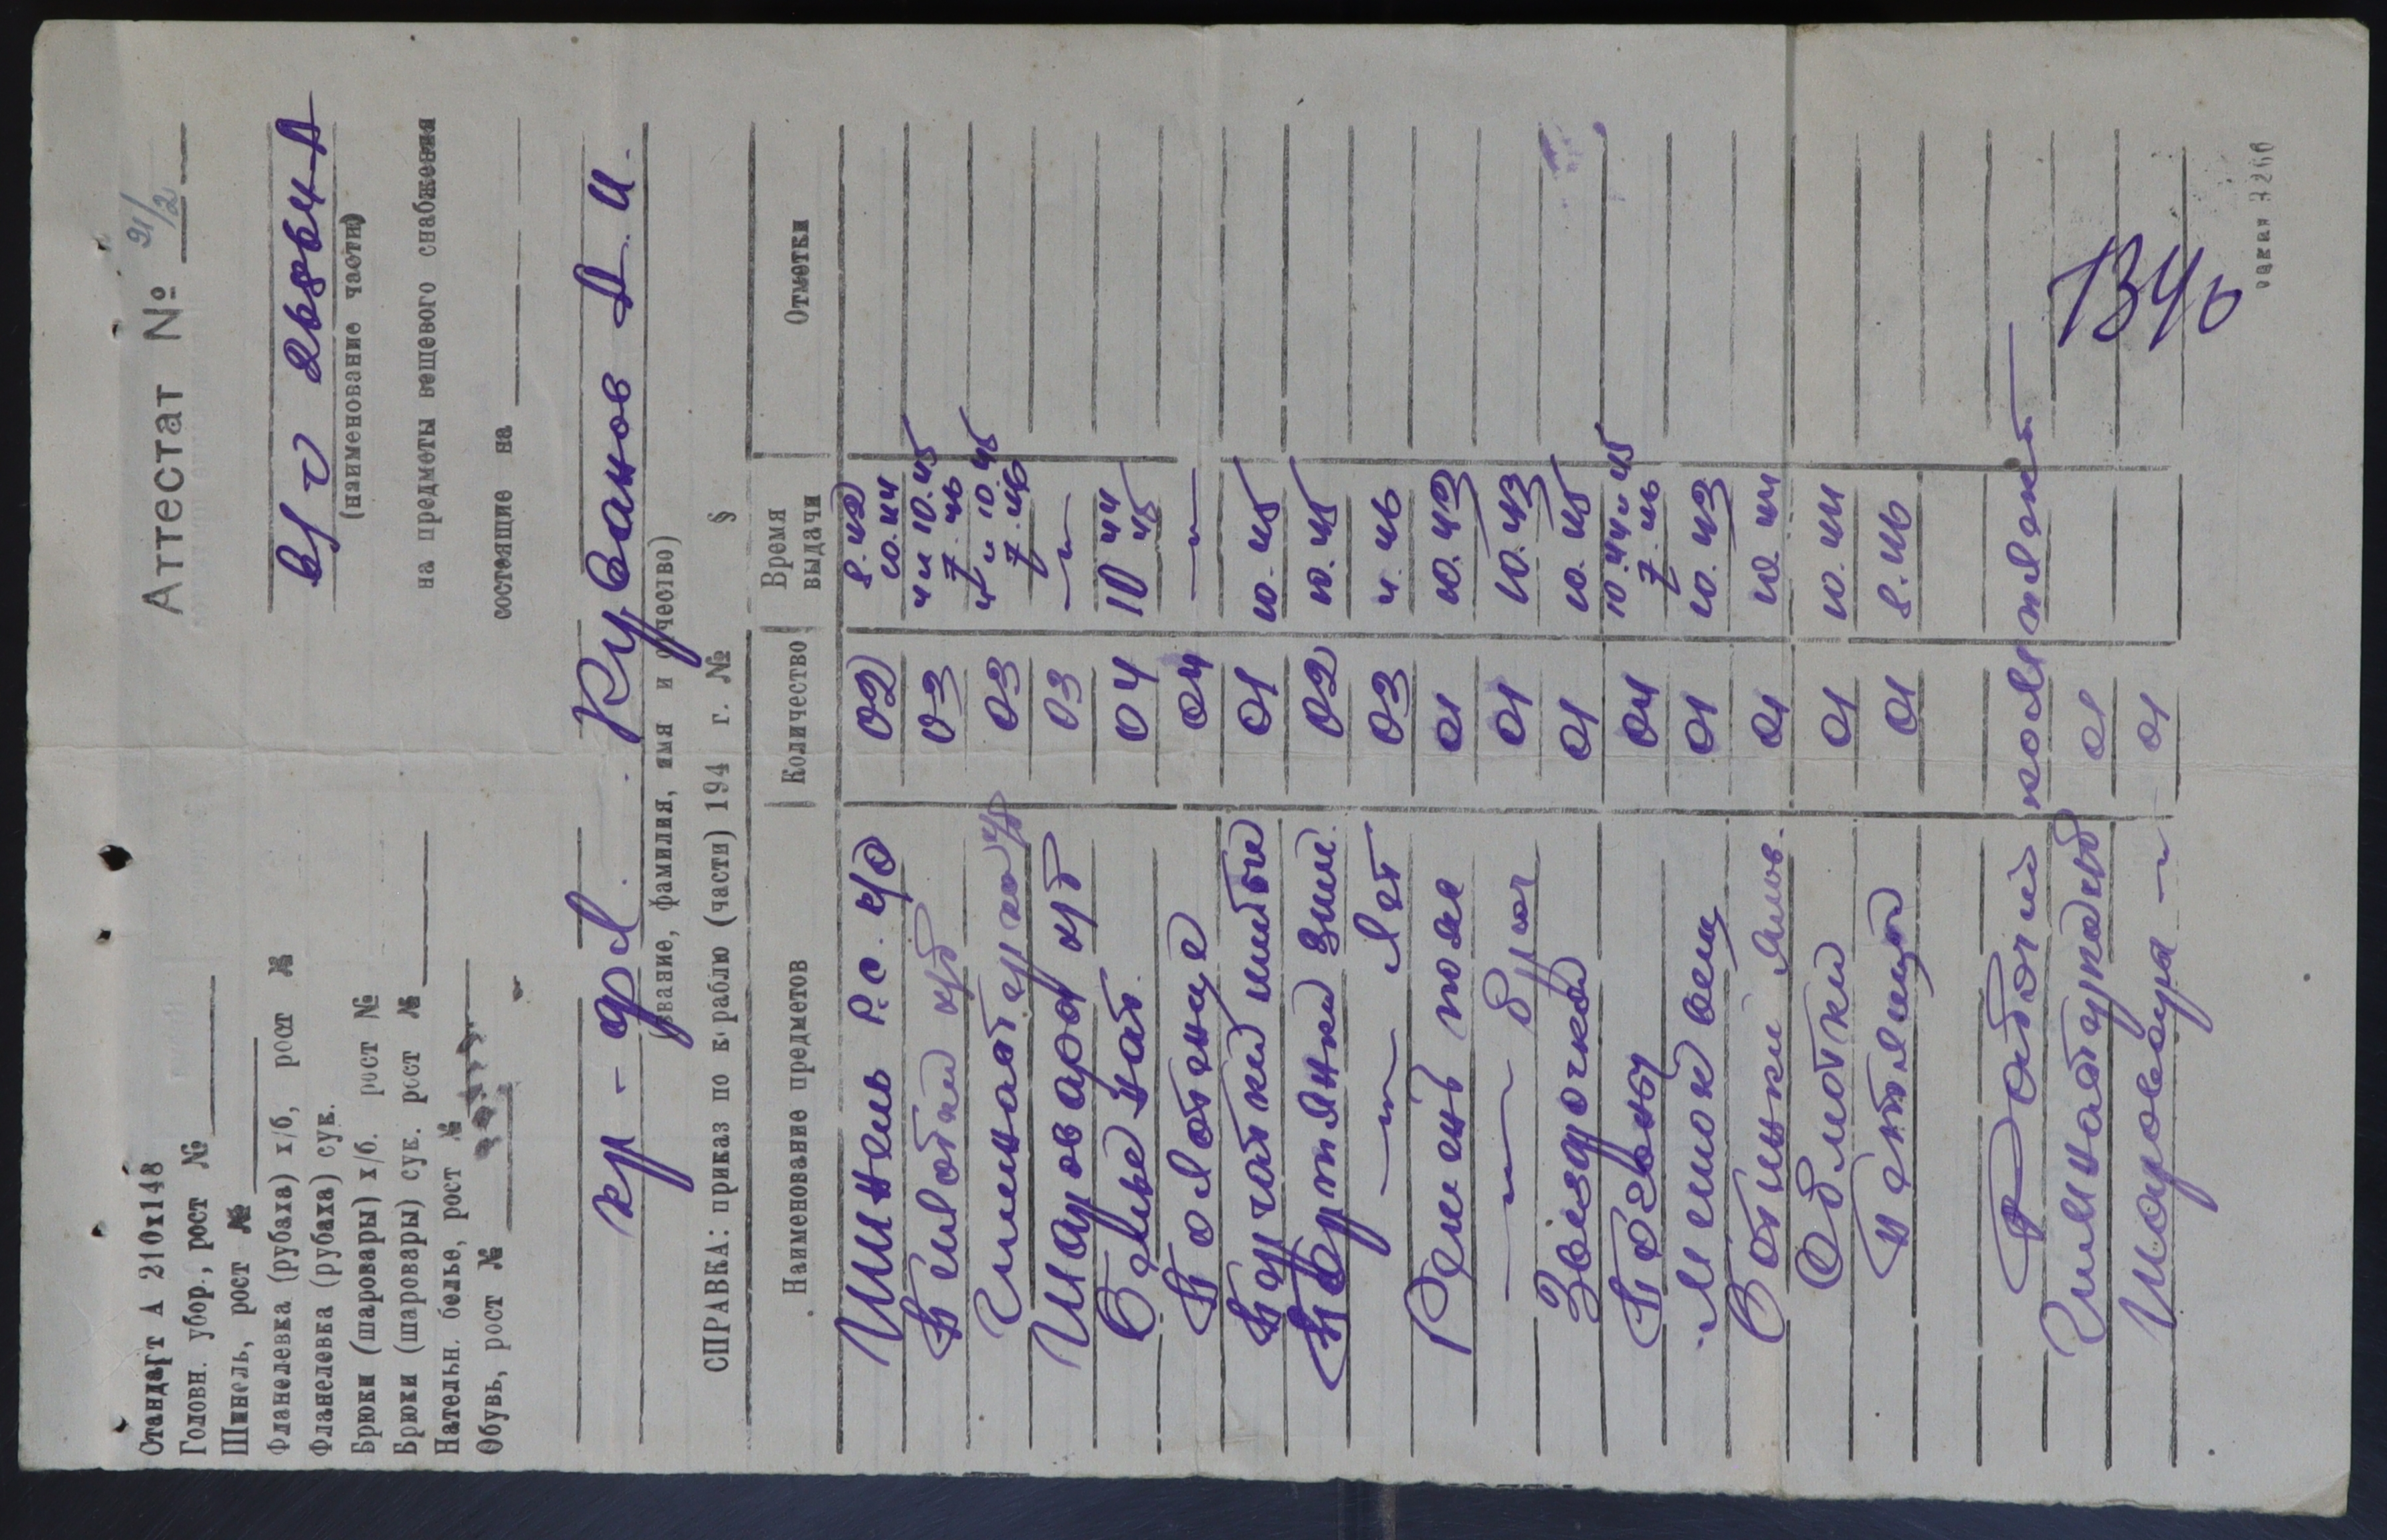 Стандарт А 210х148
Головн. убор., рост №
Шинель, рост №
Фланелевка (рубаха) х/б, рост №
Фланелевка (рубаха) сук.
Брюки (шаровары) х/б. рост №
Брюки (шаровары) сук. рост №
Нательн. белье, рост №
Обувь, рост №
Аттестат № 91/2
в/ч 26864-А
(наименование части)
на предметы вещевого снабжения
состоящие на
кр-фл. Кубанов А. И.
звание, фамилия, имя и отчество)
СПРАВКА: приказ по кораблю (части) 194 г. № §
Наименование предметов Количество Время выдачи Отметки
Шинель р.с. к/о 02 8.42 10.44
Пилотки х/б 03 4 и 10.45 7.46
Гимнастерки х/б 03 4 и 10.45 7.46
Шаровары х/б 03 —"—
Белье нат. 04 10 44 45
Полотенце 04 —"—
Перчатки шитые 01 10.45
Портянки зим. 02 10.45
—"— лет 03 4.46
Ремень пояс 01 10.43
—"— брюч 01 10.43
Звездочка 01 10.45
Погоны 04 10.44 и 45 7.46
Мешок вещ 01 10.43
Ботинки яров. 01 10.44
Обмотки 01 10.44
01 8.46
Рабочий комплект
Гимнастерка х/б 01
Шаровары —"— 01
1340
3266